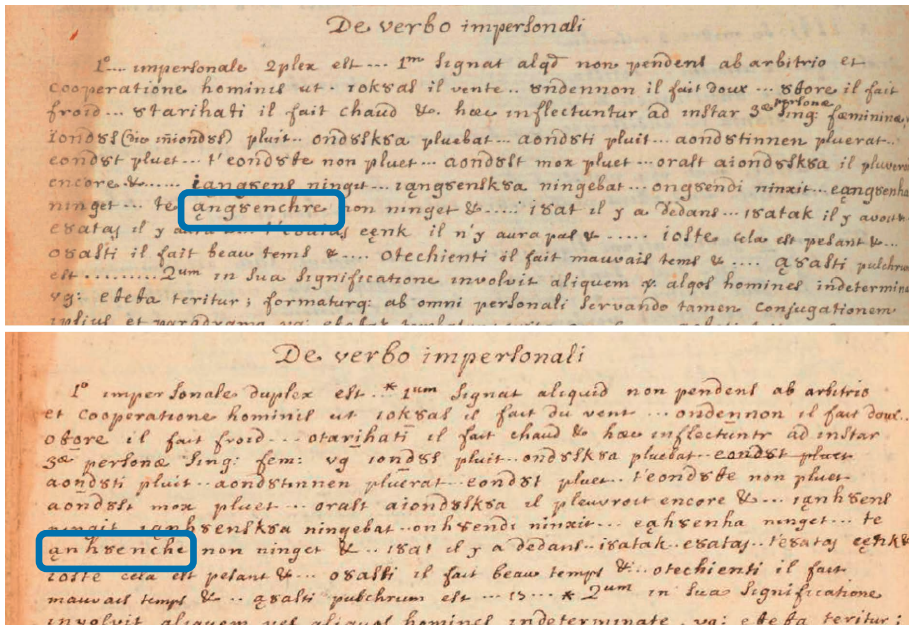 De verbo impersonali
1º... impersonale 2plex est... 1m signat alqd non pendens ab arbitrio et
cooperatione hominis ut. iokȣas il vente.. ȣndennon il fait doux... ȣtore il fait
froid... ȣtarihati il fait chaud &c. hæc inflectuntur ad instar 3æ personæ sing: fæminine,
pluit.. ondȣskȣa pluebat... aondȣti pluit.. aondȣtinnen pluerat..
eondȣt pluet... t'eondȣte non pluet... aondȣst mox pluet... orast aiondȣskȣa il
encore &...... ningit... ningebat... ongȣendi ninxit...
ninget... te ąngȣenchre non ninget &.... iȣat il y a dedans.. iȣatak il y
eȣataj il y aura ęęnk il n'y aura pas &..... ioste cela est pesant &..
oȣasti il fait beau tems &.... otechienti il fait mauvais tems &.... ąȣasti
est ......... 2um in sua significatione involvit aliquem
vg: eteta teritur; formaturq: ab omni personali servando tamen conjugationem
De verbo impersonali
1º impersonale duplex est.. * 1um signat aliquid non pendens ab arbitrio
et cooperatione hominis ut iokȣas il fait du vent ... ondennon il fait doux..
oȣtore il fait froid... otarihati il fait chaud & hæc inflectuntr ad instar
3æ personæ sing: fem: vg iondȣs pluit.. ondȣskȣa pluebat.. eondȣt pluet
aondȣti pluit.. aondȣtinnen pluerat.. eondȣt pluet.. t'eondȣte non pluet
aondȣst mox pluet... orast aiondȣskȣa il pleuvroit encore &... ıąnhȣens
ningit ıąnhȣenskȣa ningebat.. onhȣendi ninxit... eąhȣenha ninget... te
ąnhȣenche non ninget & .. iȣat il y a dedans.. iȣatak.. eȣataj.. t'eȣataj ęęnk &
ioste cela est pesant &.. oȣasti il fait beau temps &.. otechienti il fait
mauvais temps &.. ąȣasti pulchrum est ... * 2um in sua significatione
involvit aliquem vel aliquos homines indeterminate. vg: eteta teritur;